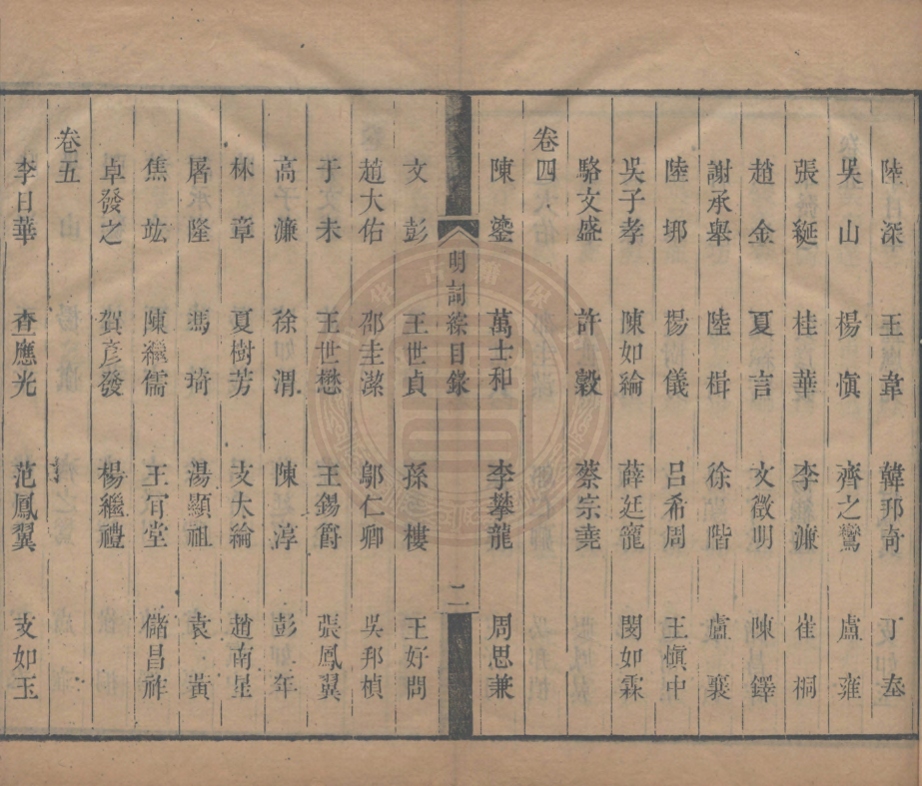 陸深 王韋 韓邦奇 丁奉
吳山 楊愼 齊之鸞 盧雍
張綖 桂華 李濂 崔桐
趙金 夏言 文徵明 陳鐸
謝承舉 陸楫 徐階 盧襄
陸埛 楊儀 呂希周 王愼中
吳子孝 陳如綸 薛廷寵 閔如霖
駱文盛 許穀 蔡宗堯
卷四
陳鎏 萬士和 李攀龍 周思兼
明詞綜目錄 二
文彭 王世貞 孫樓 王好問
趙大佑 邵圭潔 鄔仁卿 吳邦楨
于未 王世懋 王錫爵 張鳳翼
高濂 徐渭 陳淳 彭年
林章 夏樹芳 支大綸 趙南星
屠隆 馮琦 湯顯祖 袁黃
焦竑 陳繼儒 王宵堂 儲昌祚
卓發之 賀彦發 楊繼禮
卷五
李日華 查應光 范鳳翼 支如玉